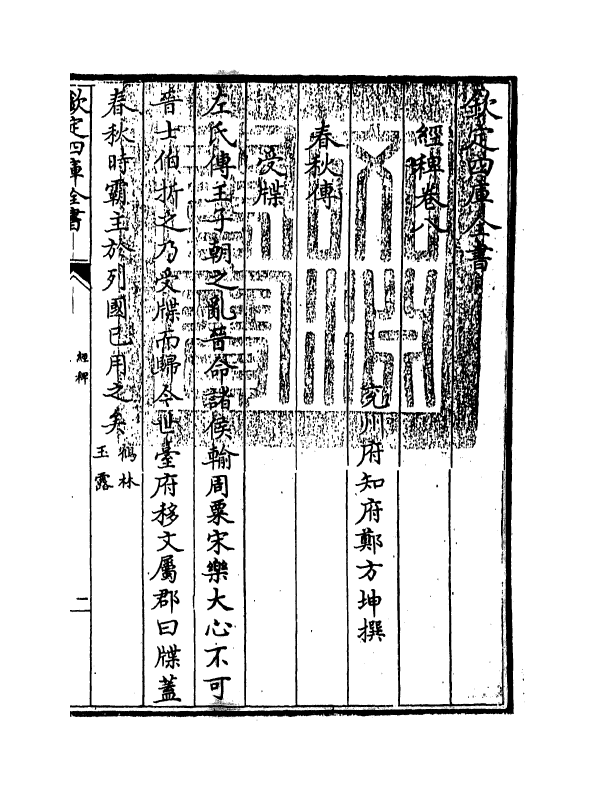 欽定四庫全書
經稗卷八
兖州府知府鄭方坤撰
春秋傳
受牒
左氏傳王子朝之亂晉命諸侯輸周粟宋樂大心不可
晉士伯折之乃受牒而歸今世臺府移文屬郡曰牒蓋
春秋時霸主於列國已用之矣鶴林
玉露
欽定四庫全書
經稗